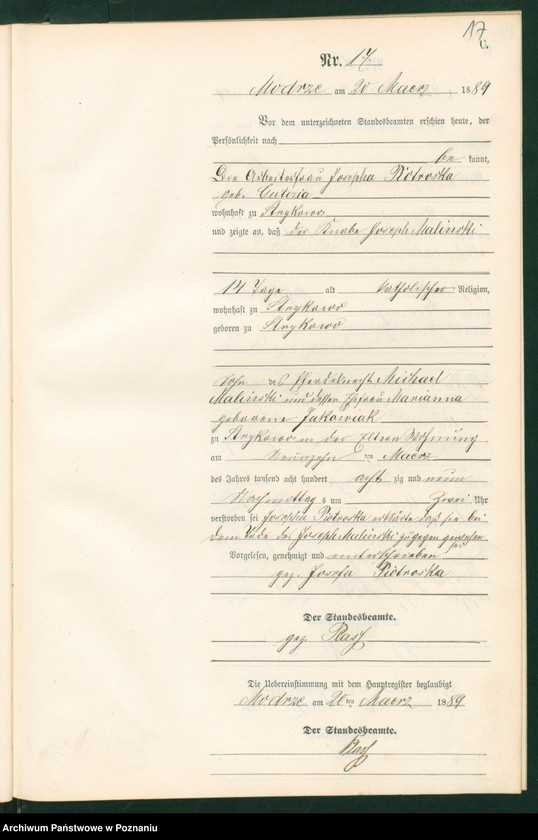 17
C.
Nr. 17.
Modrze am 20 Maerz 1889
Vor dem unterzeichneten Standesbeamten erschien heute, der
Persönlichkeit nach
be kannt,
Die Arbeiterfrau Josepha Piotroska
geb.
wohnhaft zu Strykowo
und zeigte an, daß der Knabe Joseph Malinski
14 Tage alt katholischer Religion,
wohnhaft zu Strykowo
geboren zu Strykowo
Sohn des Pferdeknecht Michael
Malinski und dessen Ehefrau Marianna
geborene Jakowiak
zu Strykowo in der Eltern Wohnung
am Neunzehn ten Maerz
des Jahres tausend acht hundert acht zig und neun
Nachmittag s um Zwei Uhr
verstorben sei Josepha Piotroska erklärte daß sie bei
dem Tode des Joseph Malinski zugegen gewesen sei
Vorgelesen, genehmigt und unterschrieben
gez. Josefa Piotroska
Der Standesbeamte.
gez.
Die Uebereinstimmung mit dem Hauptregister beglaubigt
Modrze am 20 ten Maerz 1889
Der Standesbeamte.
Archiwum Państwowe w Poznaniu